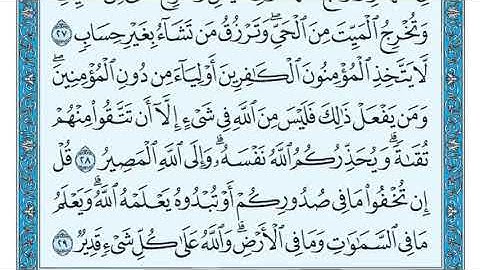 وَتُخْرِجُ الْمَيِّتَ مِنَ الْحَيِّ ۖ وَتَرْزُقُ مَن تَشَاءُ بِغَيْرِ حِسَابٍ ٢٧
لَّا يَتَّخِذِ الْمُؤْمِنُونَ الْكَافِرِينَ أَوْلِيَاءَ مِن دُونِ الْمُؤْمِنِينَ ۖ
وَمَن يَفْعَلْ ذَٰلِكَ فَلَيْسَ مِنَ اللَّهِ فِي شَيْءٍ إِلَّا أَن تَتَّقُوا مِنْهُمْ
تُقَاةً ۗ وَيُحَذِّرُكُمُ اللَّهُ نَفْسَهُ ۗ وَإِلَى اللَّهِ الْمَصِيرُ ٢٨ قُلْ
إِن تُخْفُوا مَا فِي صُدُورِكُمْ أَوْ تُبْدُوهُ يَعْلَمْهُ اللَّهُ ۗ وَيَعْلَمُ
مَا فِي السَّمَاوَاتِ وَمَا فِي الْأَرْضِ ۗ وَاللَّهُ عَلَىٰ كُلِّ شَيْءٍ قَدِيرٌ ٢٩